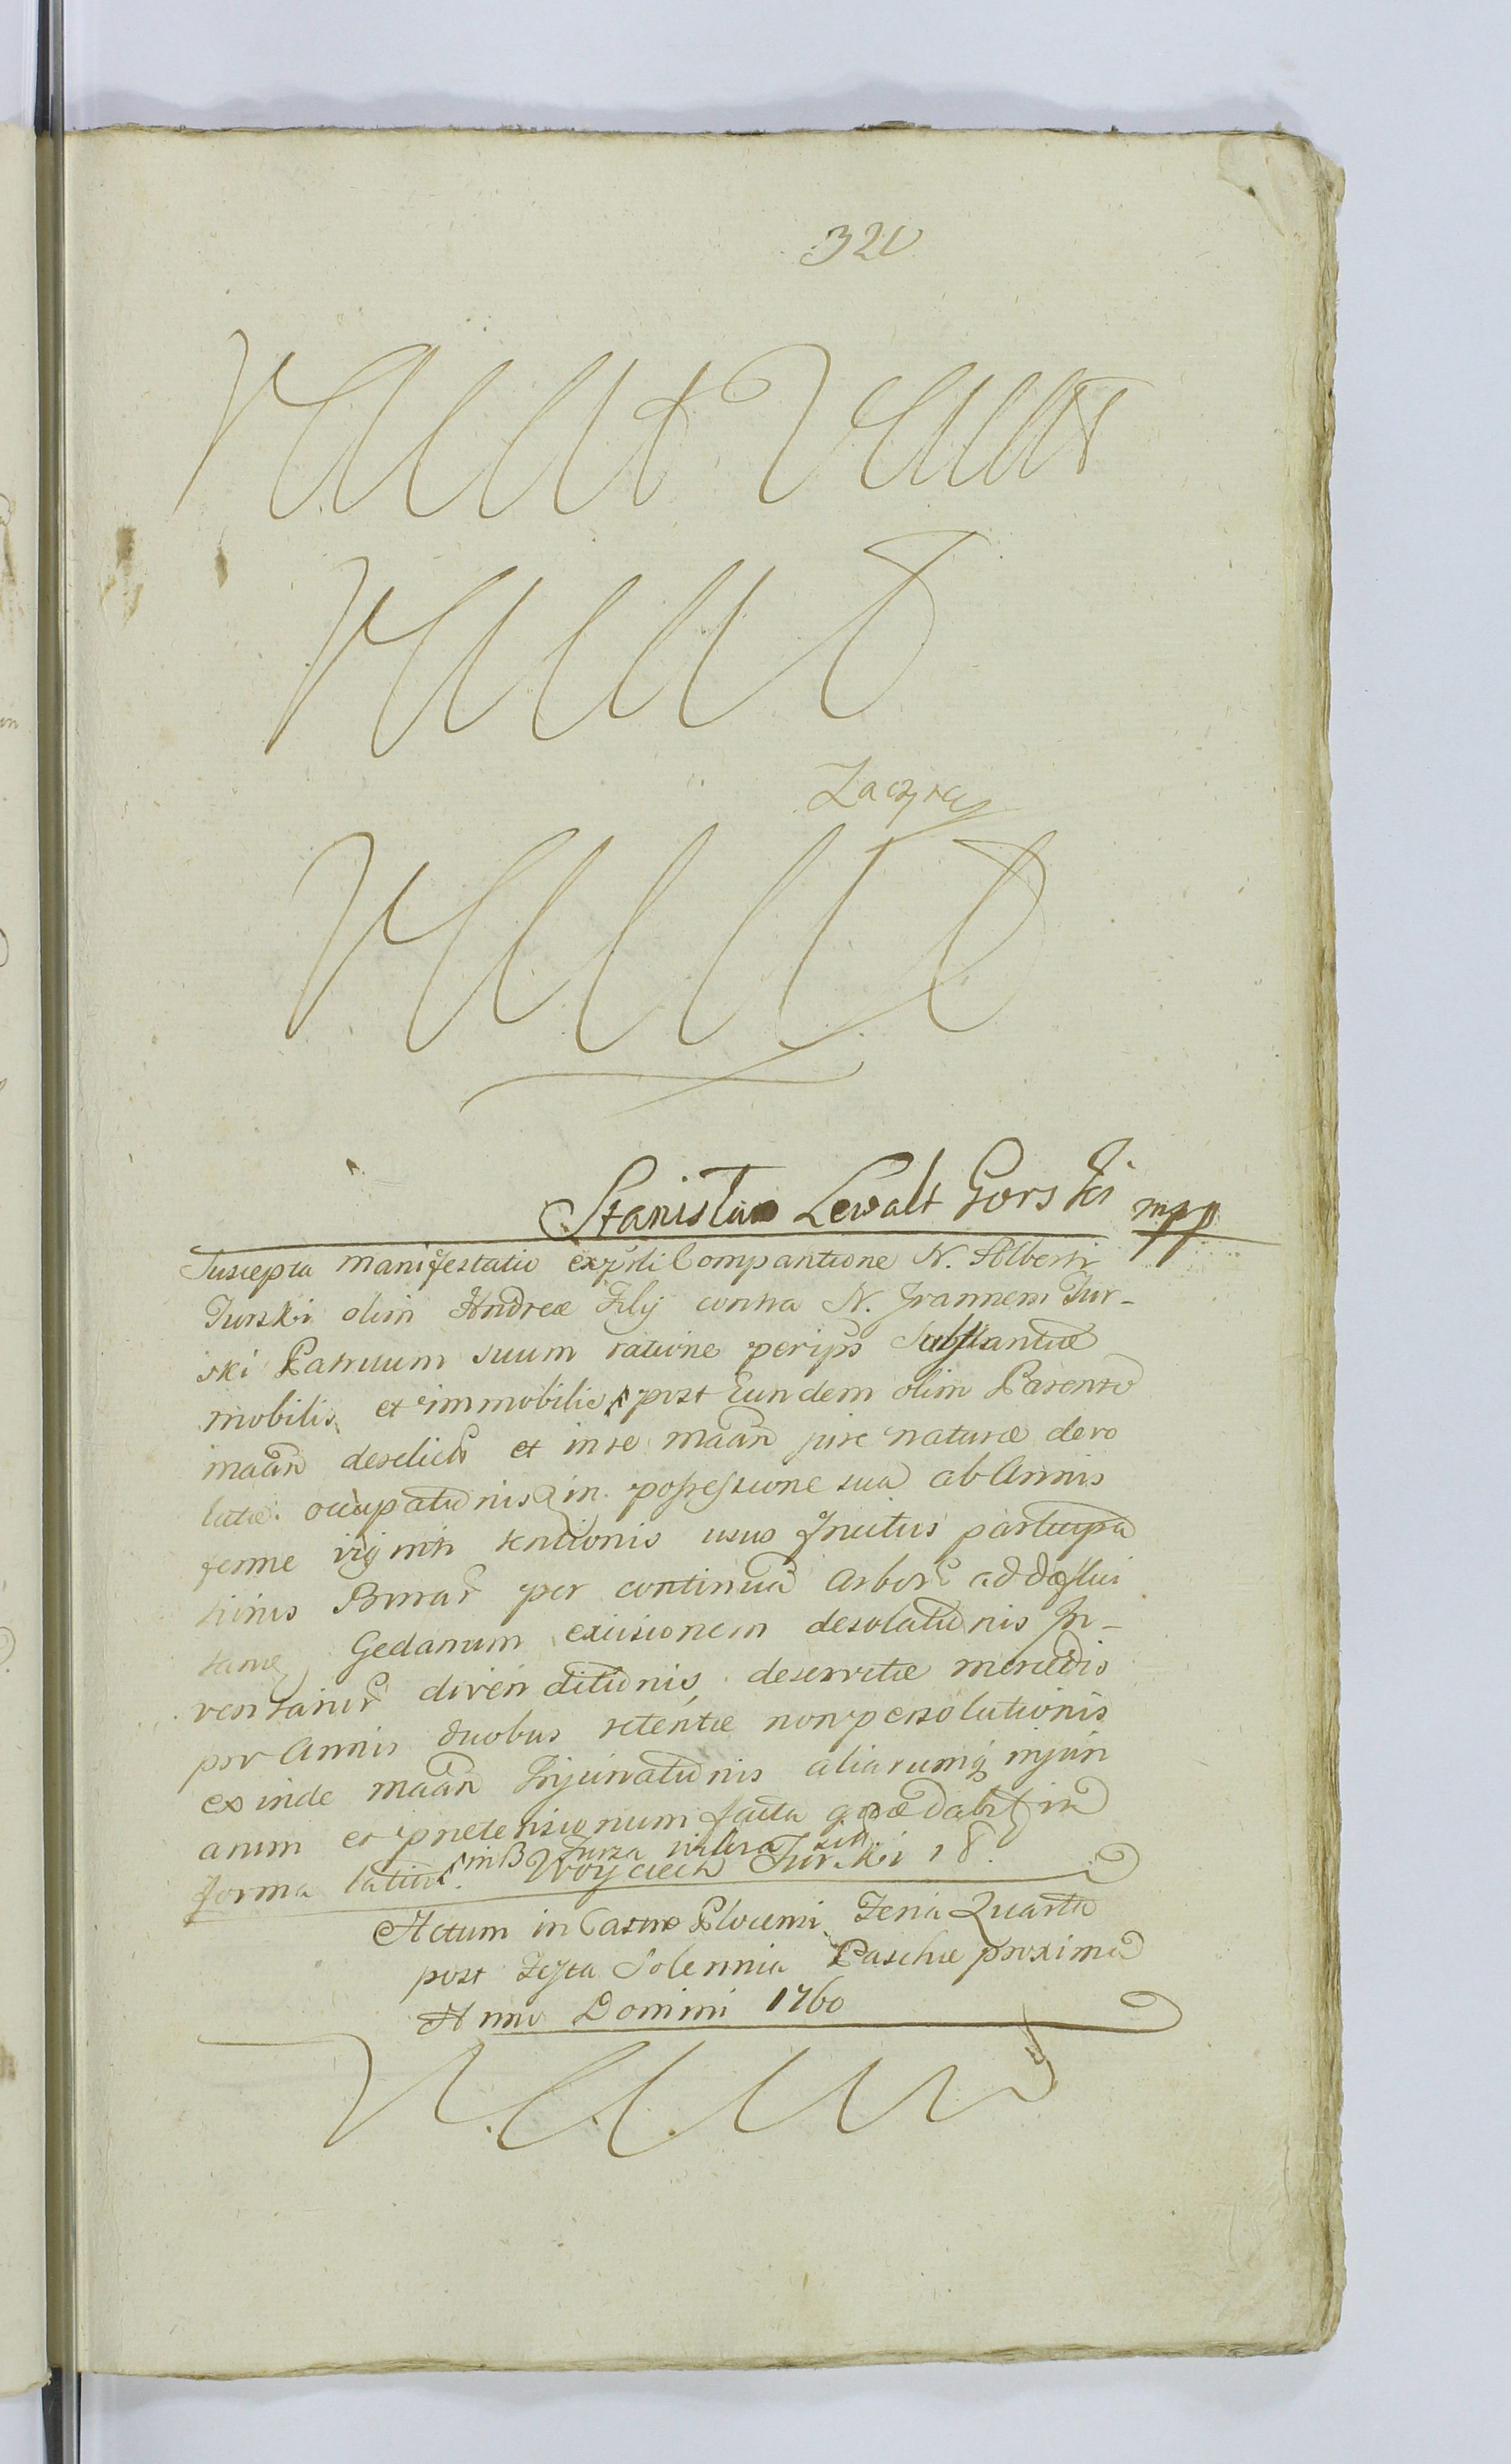 320
Vacat Vacat
Vacat
Vacat
Stanislao Lewalt Gorski mpp
Suscepta manifestatio ex Compantione N. Alberti
Turski olim Andreæ Filij contra N. Joannem Tur-
ski Patruum suum ratione perips Substantiæ
mobilis et immobilis post Eundem olim Parente
maãn derelict et in se maãn jure naturæ devo
lutæ occupationis in possessione sua ab Annis
ferme viginti tentionis usus fructus participa
tionis per continuã Arbor ad deflui
Gedanum excisionem desolationis In-
ventarior divenditionis deservitæ mercedis
pro Annis duobus retentæ non persolutionis
exinde maãn Injuriationis aliarumq injuri
arum et prætensionum facta quæ dabit in
forma latiori. in B Turza Woyciech Turski
Actum in Castro Plocensi Feria Quarta
post Festa Solennia Paschæ proxima
Anno Domini 1760
Vacat